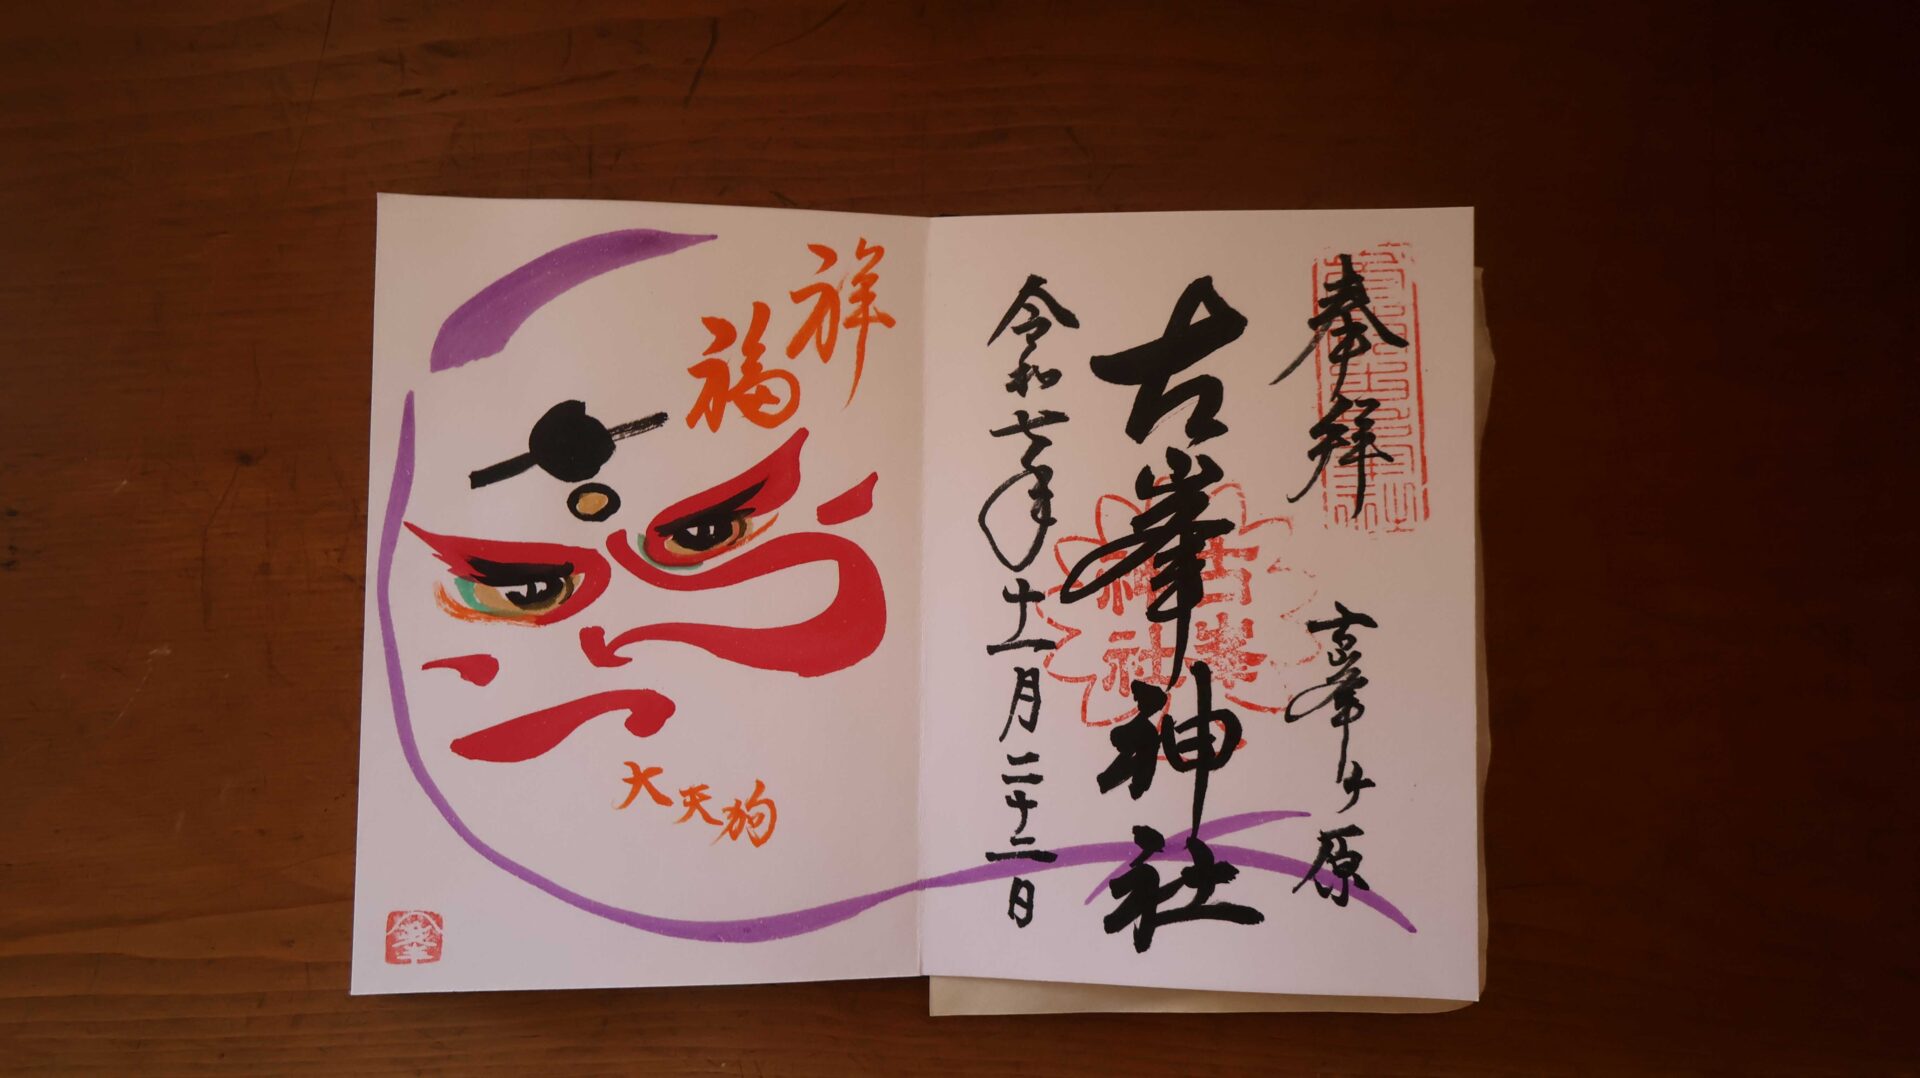 奉拝
古峯ヶ原
古峯神社
古峯
神社
令和七年十一月二十二日
祥福
大天狗
峯